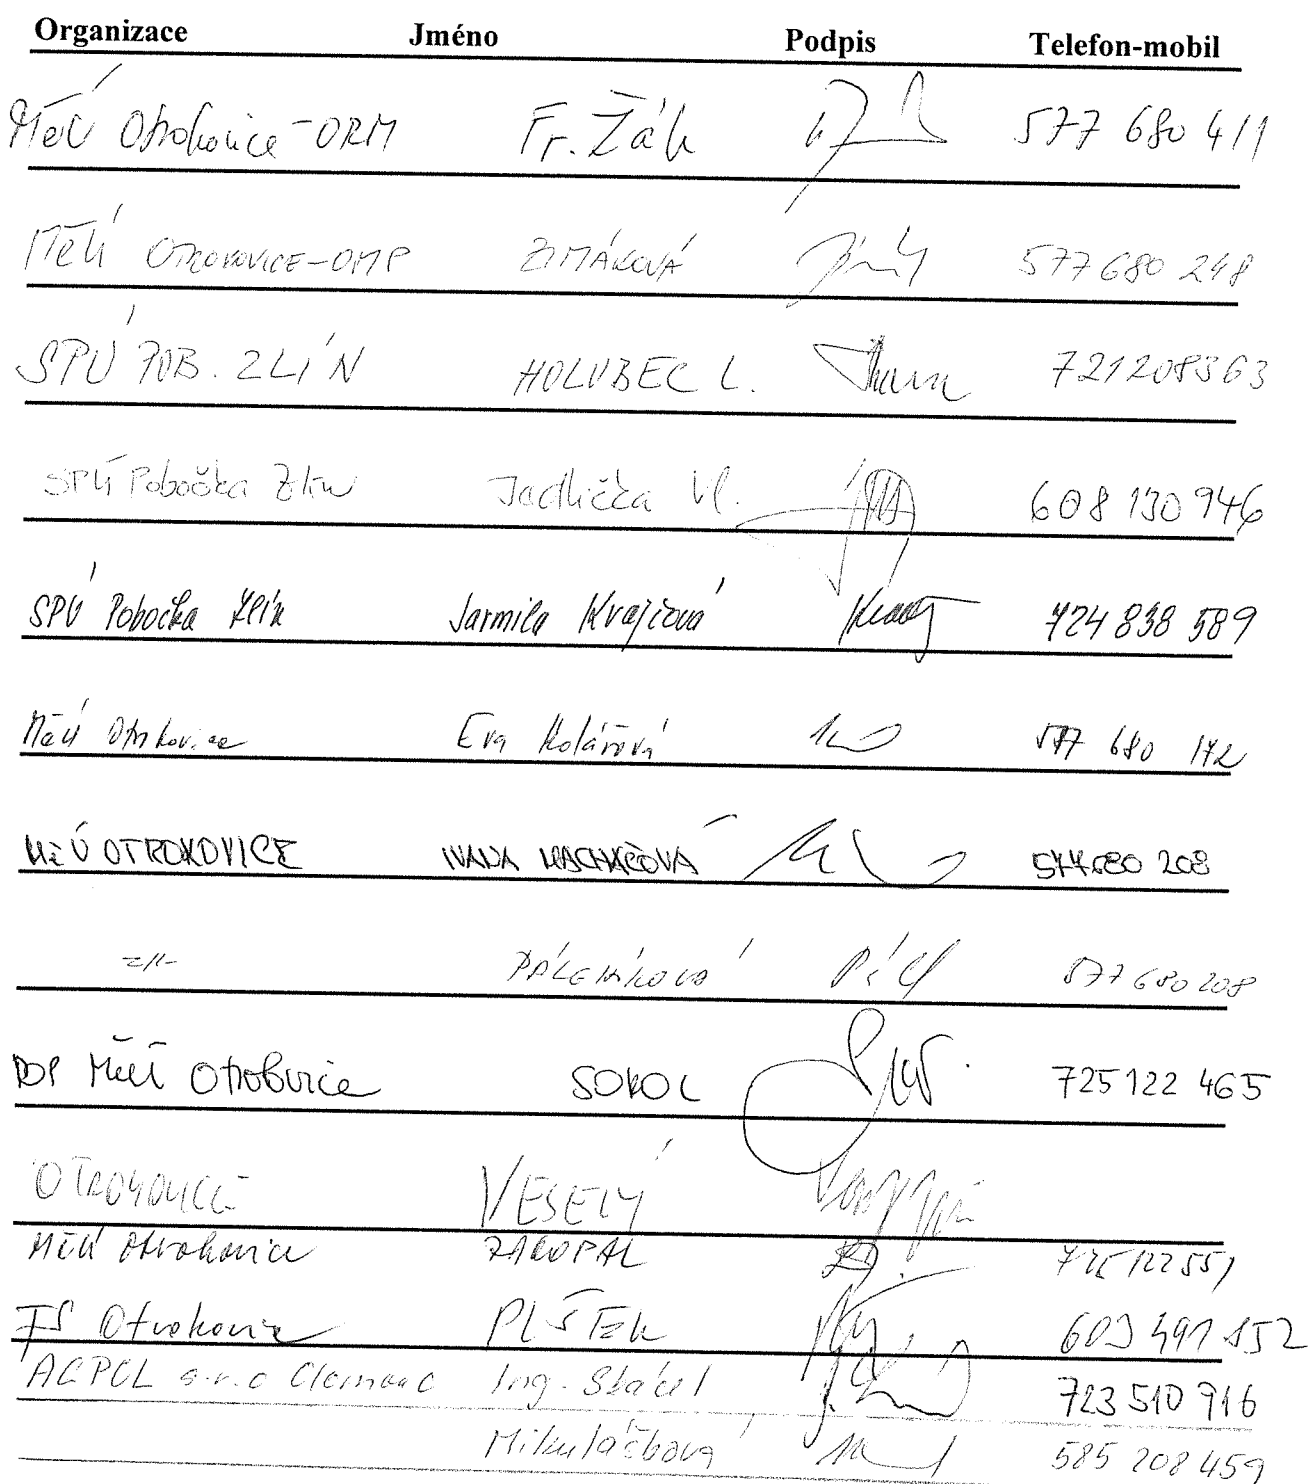 Organizace Jméno Podpis Telefon-mobil
MěÚ Otrokovice-ORM Fr. Žák 577 680 411
MěÚ OTROKOVICE-OMP ZIMÁKOVÁ 577 680 248
SPÚ POB. ZLÍN HOLUBEC L. 721208363
SPÚ Pobočka Zlín Jedlička Vl. 608 130 946
SPÚ Pobočka Zlín Jarmila Krajčová 724 838 589
MěÚ Otrokovice Eva Kolářová 577 680 172
MěÚ OTROKOVICE IVANA MACHÁČOVÁ 577680 208
=//- PÁLENÍKOVÁ 577 680 208
MěÚ Otrokovice SOKOL 725 122 465
OTROKOVICE VESELÝ
MěÚ Otrokovice ZAKOPAL 725122551
TS Otrokovice PLŠTEK 603 491 152
AGPOL s.r.o Olomouc Ing. 723 510 916
Mikuláčková 585 208 459